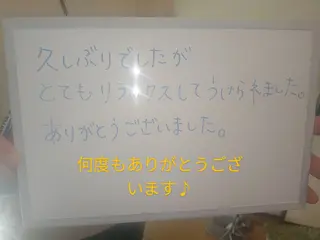 久しぶりでしたが
とてもリラックスしてうけられました。
ありがとうございました。
何度もありがとうござ
います♪